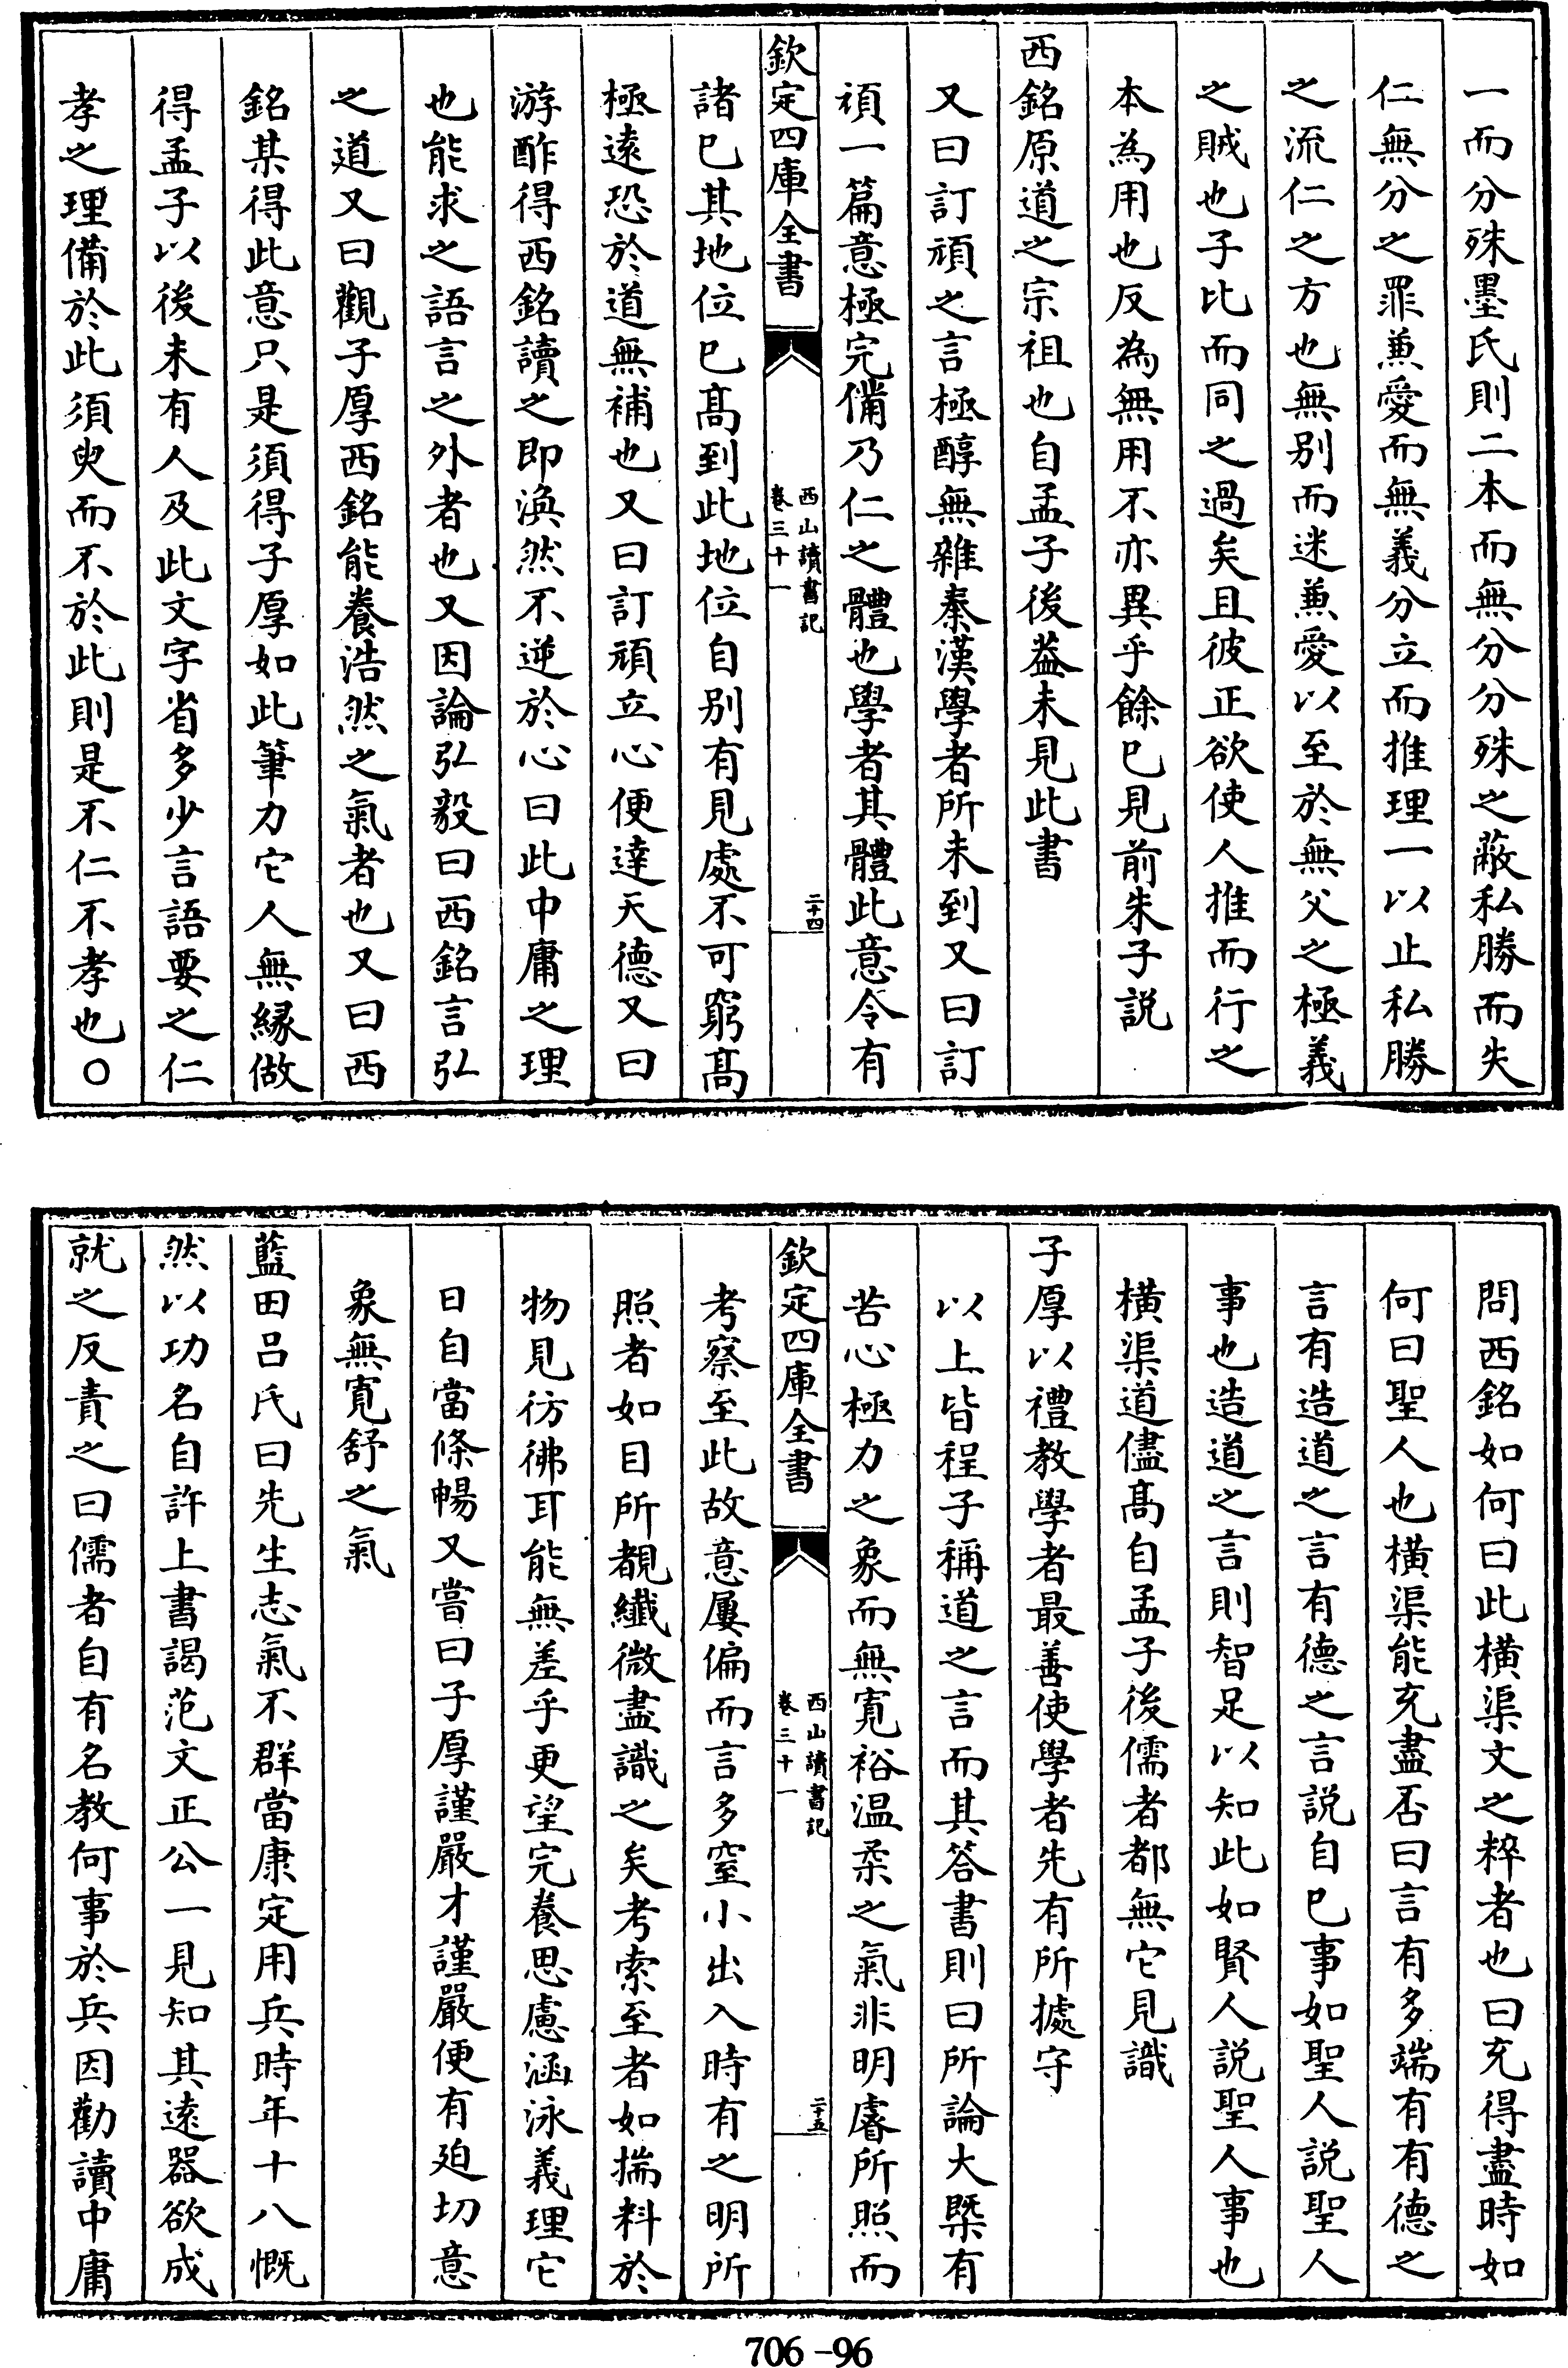 一而分殊墨氏則二本而無分分殊之蔽私勝而失
仁無分之罪兼愛而無義分立而推理一以止私勝
之流仁之方也無别而迷兼愛以至於無父之極義
之賊也子比而同之過矣且彼正欲使人推而行之
本為用也反為無用不亦異乎餘已見前朱子説
西銘原道之宗祖也自孟子後葢未見此書
又曰訂頑之言極醇無雜秦漢學者所未到又曰訂
頑一篇意極完備乃仁之體也學者其體此意令有
欽定四庫全書
西山讀書記
卷三十一
二十四
諸已其地位已髙到此地位自别有見處不可窮髙
極逺恐於道無補也又曰訂頑立心便達天德又曰
游酢得西銘讀之即渙然不逆於心曰此中庸之理
也能求之語言之外者也又因論弘毅曰西銘言弘
之道又曰觀子厚西銘能養浩然之氣者也又曰西
銘某得此意只是須得子厚如此筆力它人無緣做
得孟子以後未有人及此文字省多少言語要之仁
孝之理備於此須臾而不於此則是不仁不孝也○
問西銘如何曰此橫渠文之粹者也曰充得盡時如
何曰聖人也橫渠能充盡否曰言有多端有有德之
言有造道之言有德之言說自已事如聖人説聖人
事也造道之言則智足以知此如賢人説聖人事也
橫渠道儘髙自孟子後儒者都無它見識
子厚以禮教學者最善使學者先有所據守
以上皆程子稱道之言而其答書則曰所論大槩有
苦心極力之象而無寛裕温柔之氣非明睿所照而
欽定四庫全書
西山讀書記
卷三十一
二十五
考察至此故意屢偏而言多窒小出入時有之明所
照者如目所覩纎微盡識之矣考索至者如揣料於
物見彷彿耳能無差乎更望完養思慮涵泳義理它
日自當條暢又嘗曰子厚謹嚴才謹嚴便有廹切意
象無寛舒之氣
藍田吕氏曰先生志氣不群當康定用兵時年十八慨
然以功名自許上書謁范文正公一見知其逺器欲成
就之反責之曰儒者自有名教何事於兵因勸讀中庸
706-96